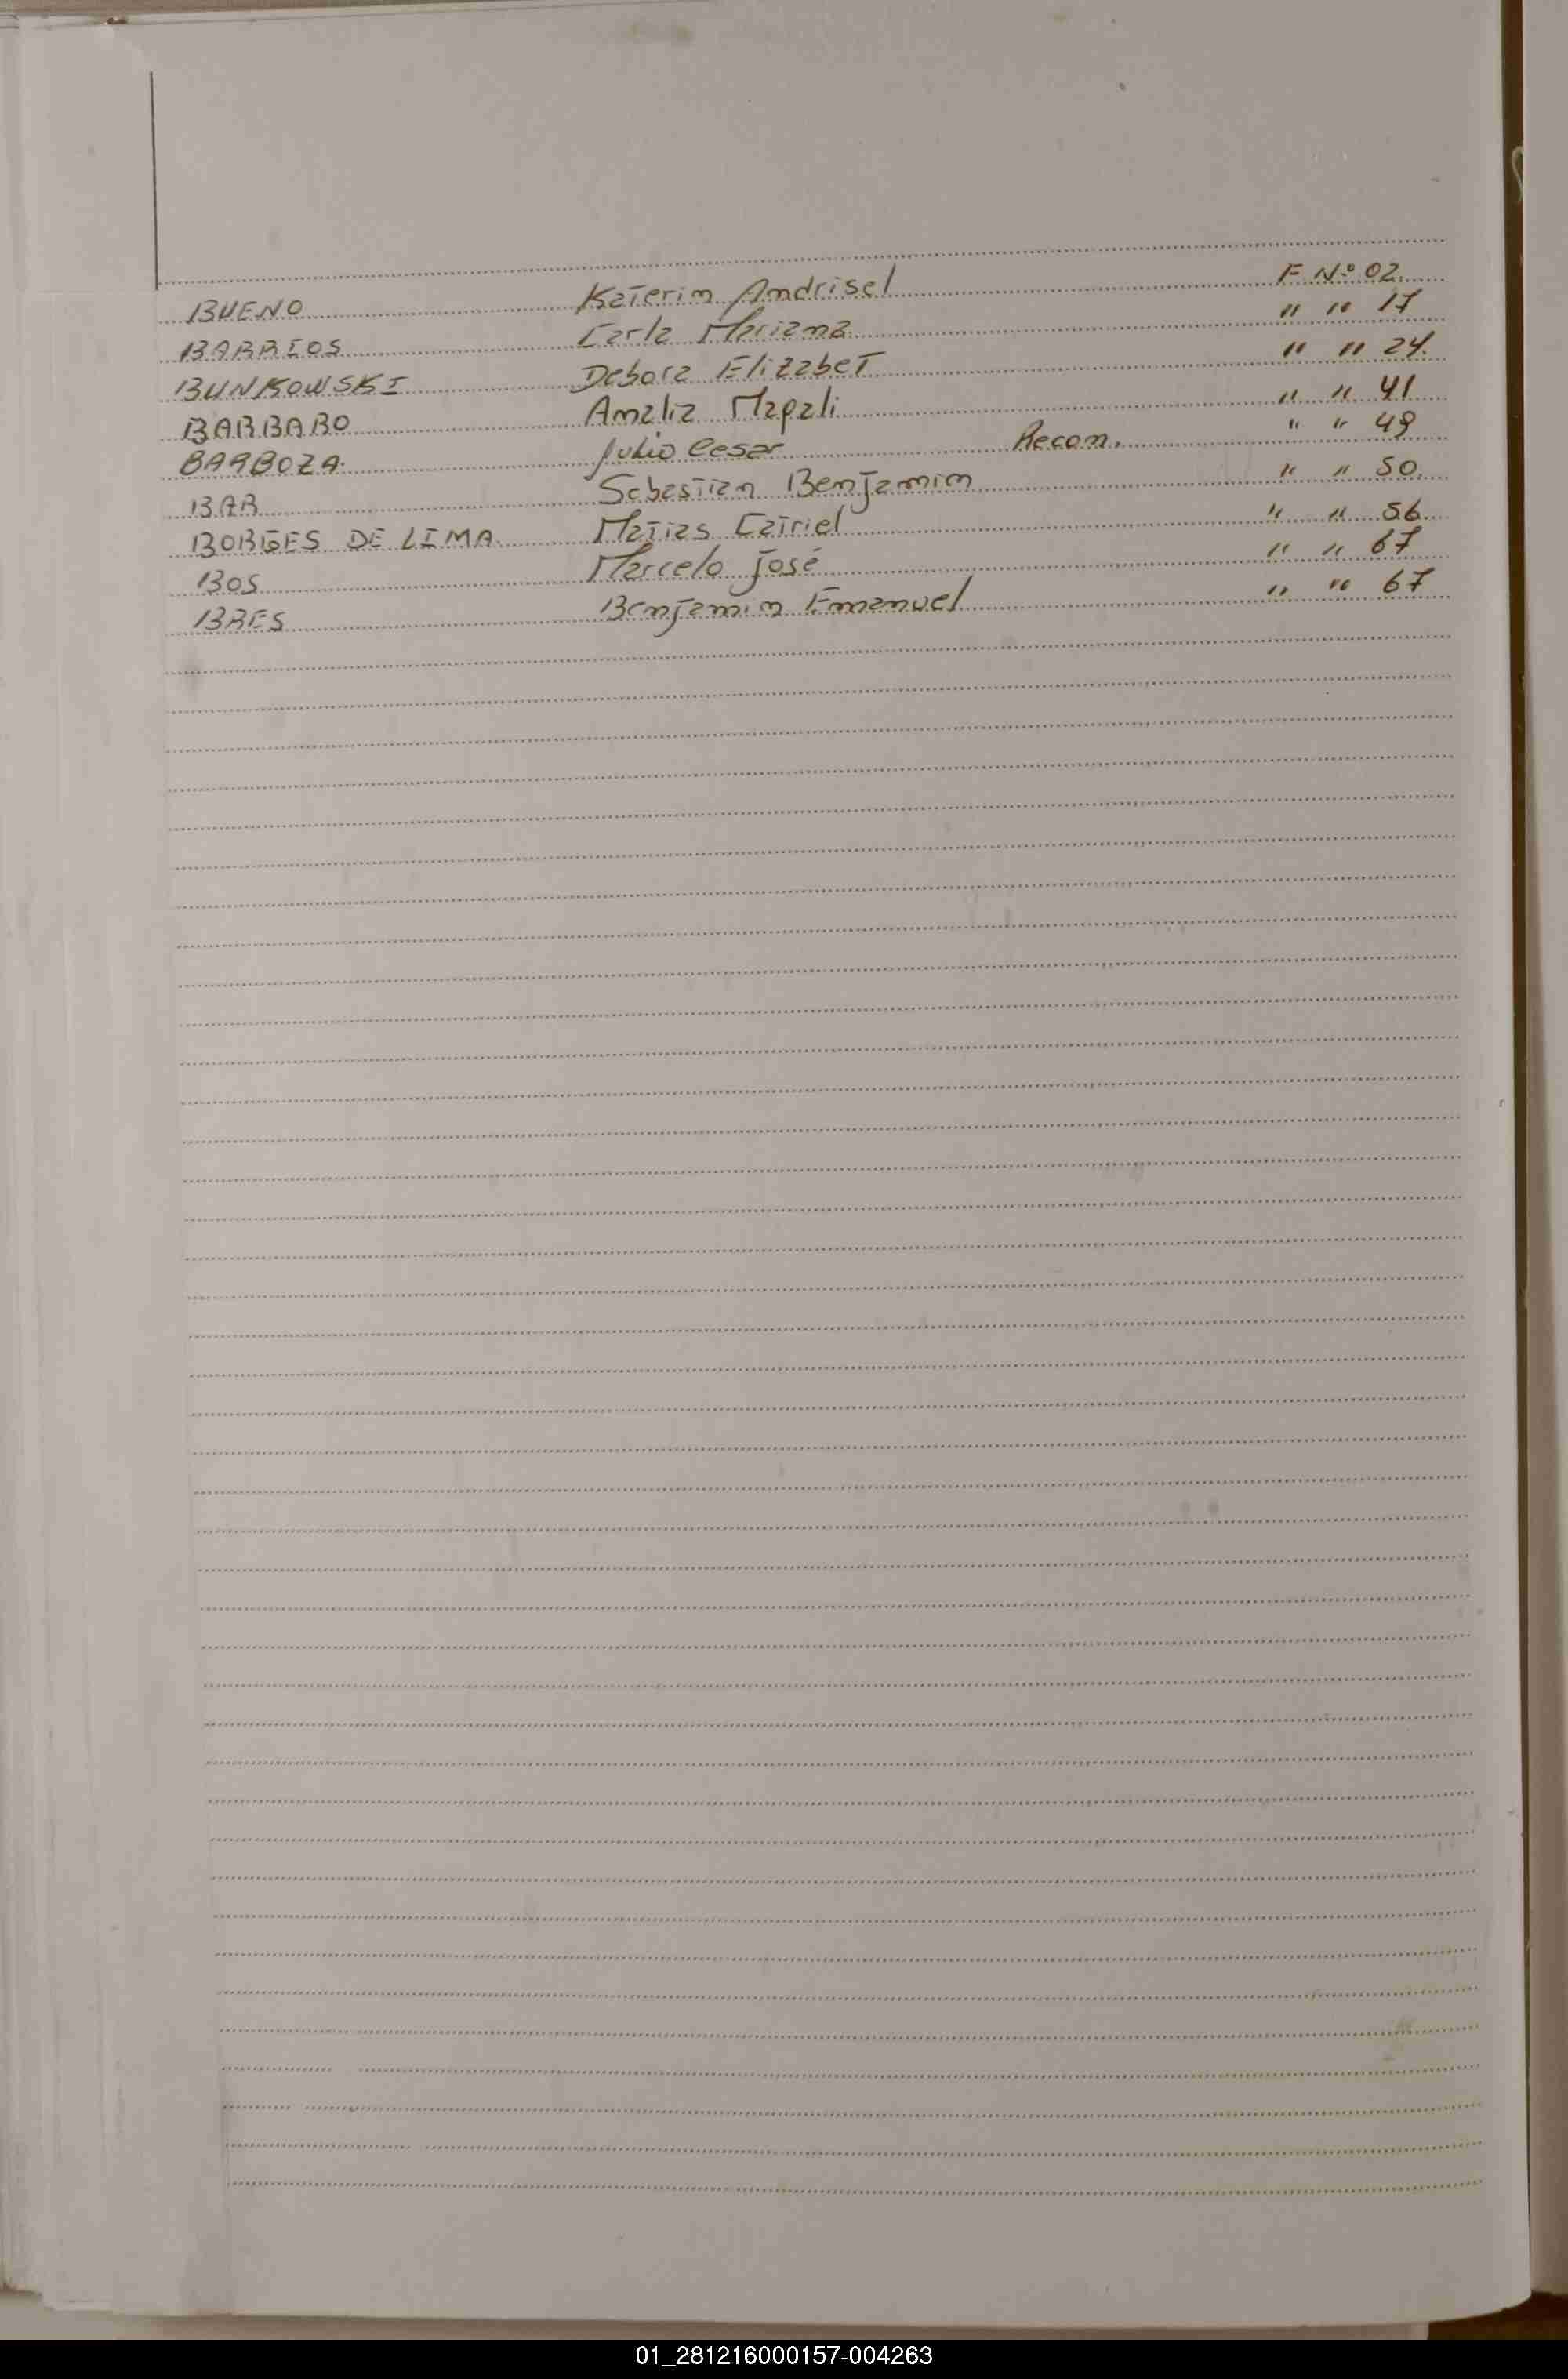 BUENO Katerin Andrisel F. Nº 02.
BARRIOS Carla Mariana " " 17
BUNKOWSKI Debora Elizabet " " 24.
BARBARO Amalia Magali " " 41
BARBOZA. Julio Cesar Recon. " " 49
BAR Sebastian Benjamin " " 50.
BORGES DE LIMA Matias " " 56.
BOS Marcelo José " " 67
BRES Benjamin Emanuel " " 67
01_281216000157-004263